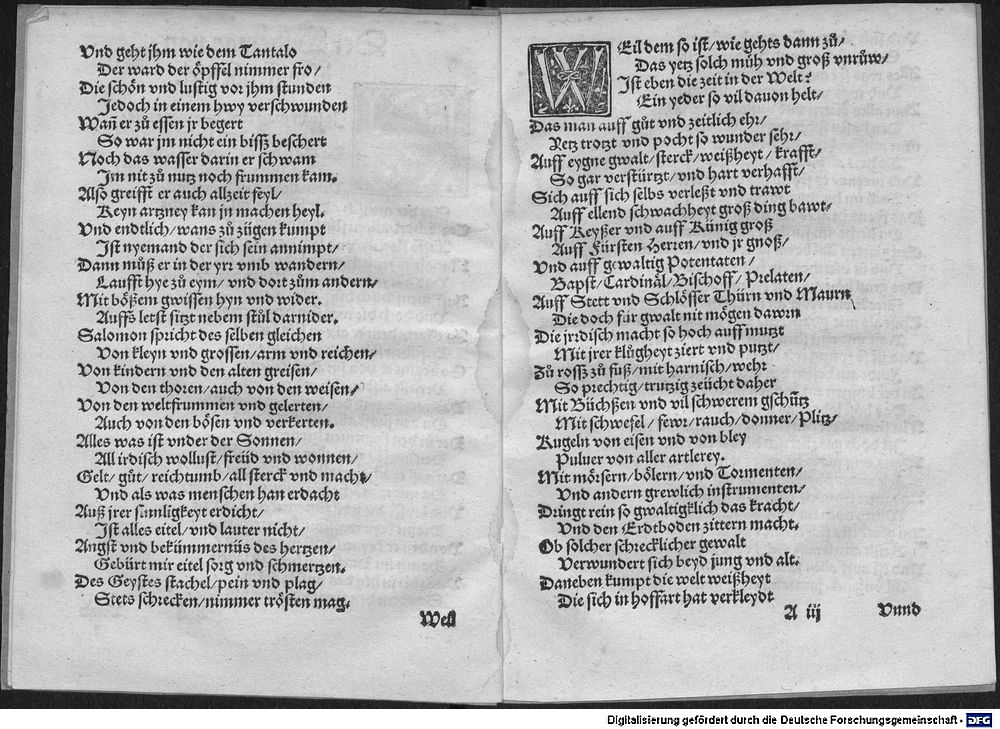 Vnd geht jhm wie dem Tantalo
Der ward der öpffel nimmer fro/
Die schön vnd lustig vor jhm stunden
Jedoch in einem hwy verschwunden
Wañ er zů essen jr begert
So war jm nicht ein bissz beschert
Noch das wasser darin er schwam
Jm nit zů nutz noch frummen kam.
Also greifft er auch allzeit feyl/
Keyn artzney kan jn machen heyl.
Vnd endtlich/wans zů zügen kumpt
Jst nyemand der sich sein annimpt/
Dann můß er in der yrr vmb wandern/
Laufft hye zů eym/ vnd dort zům andern/
Mit bößem gwissen hyn vnd wider.
Auffs letst sitzt nebem stůl darnider.
Salomon spricht des selben gleichen
Von kleyn vnd grossen/arm vnd reichen/
Von kindern vnd den alten greisen/
Von den thoren/auch von den weisen/
Von den weltfrummen vnd gelerten/
Auch von den bösen vnd verkerten.
Alles was ist vnder der Sonnen/
All irdisch wollust/freüd vnd wonnen/
Gelt/ gůt/ reichtumb/all sterck vnd macht/
Vnd als was menschen han erdacht
Auß jrer sinnligkeyt erdicht/
Jst alles eitel/vnd lauter nicht/
Angst vnd bekümmernüs des hertzen/
Gebürt mir eitel sorg vnd schmertzen.
Des Geystes stachel/pein vnd plag/
Stets schrecken/nimmer trösten mag.
Weil
WEil dem so ist/wie gehts dann zů/
Das yetz solch můh vnd groß vnrůw/
Jst eben die zeit in der Welt?
Ein yeder so vil dauon helt/
Das man auff gůt vnd zeitlich ehr/
Yetz trotzt vnd pocht so wunder sehr/
Auff eygne gwalt/sterck/weißheyt/krafft/
So gar verstürtzt/vnd hart verhafft/
Sich auff sich selbs verleßt vnd trawt
Auff ellend schwachheyt groß ding bawt/
Auff Keyßer vnd auff Künig groß
Auff Fürsten Herren/vnd jr gnoß/
Vnd auff gewaltig Potentaten/
Bapst/Cardinäl/Bischoff/Prelaten/
Auff Stett vnd Schlösser Thürn vnd Maurn
Die doch für gwalt nit mögen dawrn
Die jrrdisch macht so hoch auff mutzt
Mit jrer klůgheyt ziert vnd putzt/
Zů rossz zů fůß/mit harnisch/wehr
So prechtig/trutzig zeücht daher
Mit Büchßen vnd vil schwerem gschütz
Mit schwefel/fewr/rauch/donner/Plitz/
Kugeln von eisen vnd von bley
Puluer von aller artlerey.
Mit mörsern/bölern/vnd Tormenten/
Vnd andern grewlich instrumenten/
Dringt rein so gwaltigklich das kracht/
Vnd den Erdtboden zittern macht.
Ob solcher schrecklicher gewalt
Verwundert sich beyd jung vnd alt.
Daneben kumpt die welt weißheyt
Die sich in hoffart hat verkleydt
A iij Vnnd
Digitalisierung gefördert durch die Deutsche Forschungsgemeinschaft - DFG